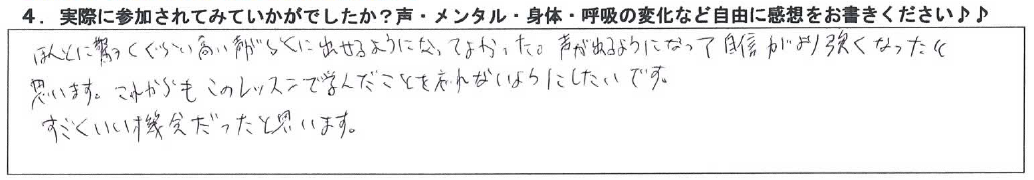 4．実際に参加されてみていかがでしたか？声・メンタル・身体・呼吸の変化など自由に感想をお書きください♪♪
ほんとに驚くくらい高い声がらくに出せるようになってよかった。声が出るようになって自信がより強くなったと
思います。これからもこのレッスンで学んだことを忘れないようにしたいです。
すごくいい機会だったと思います。